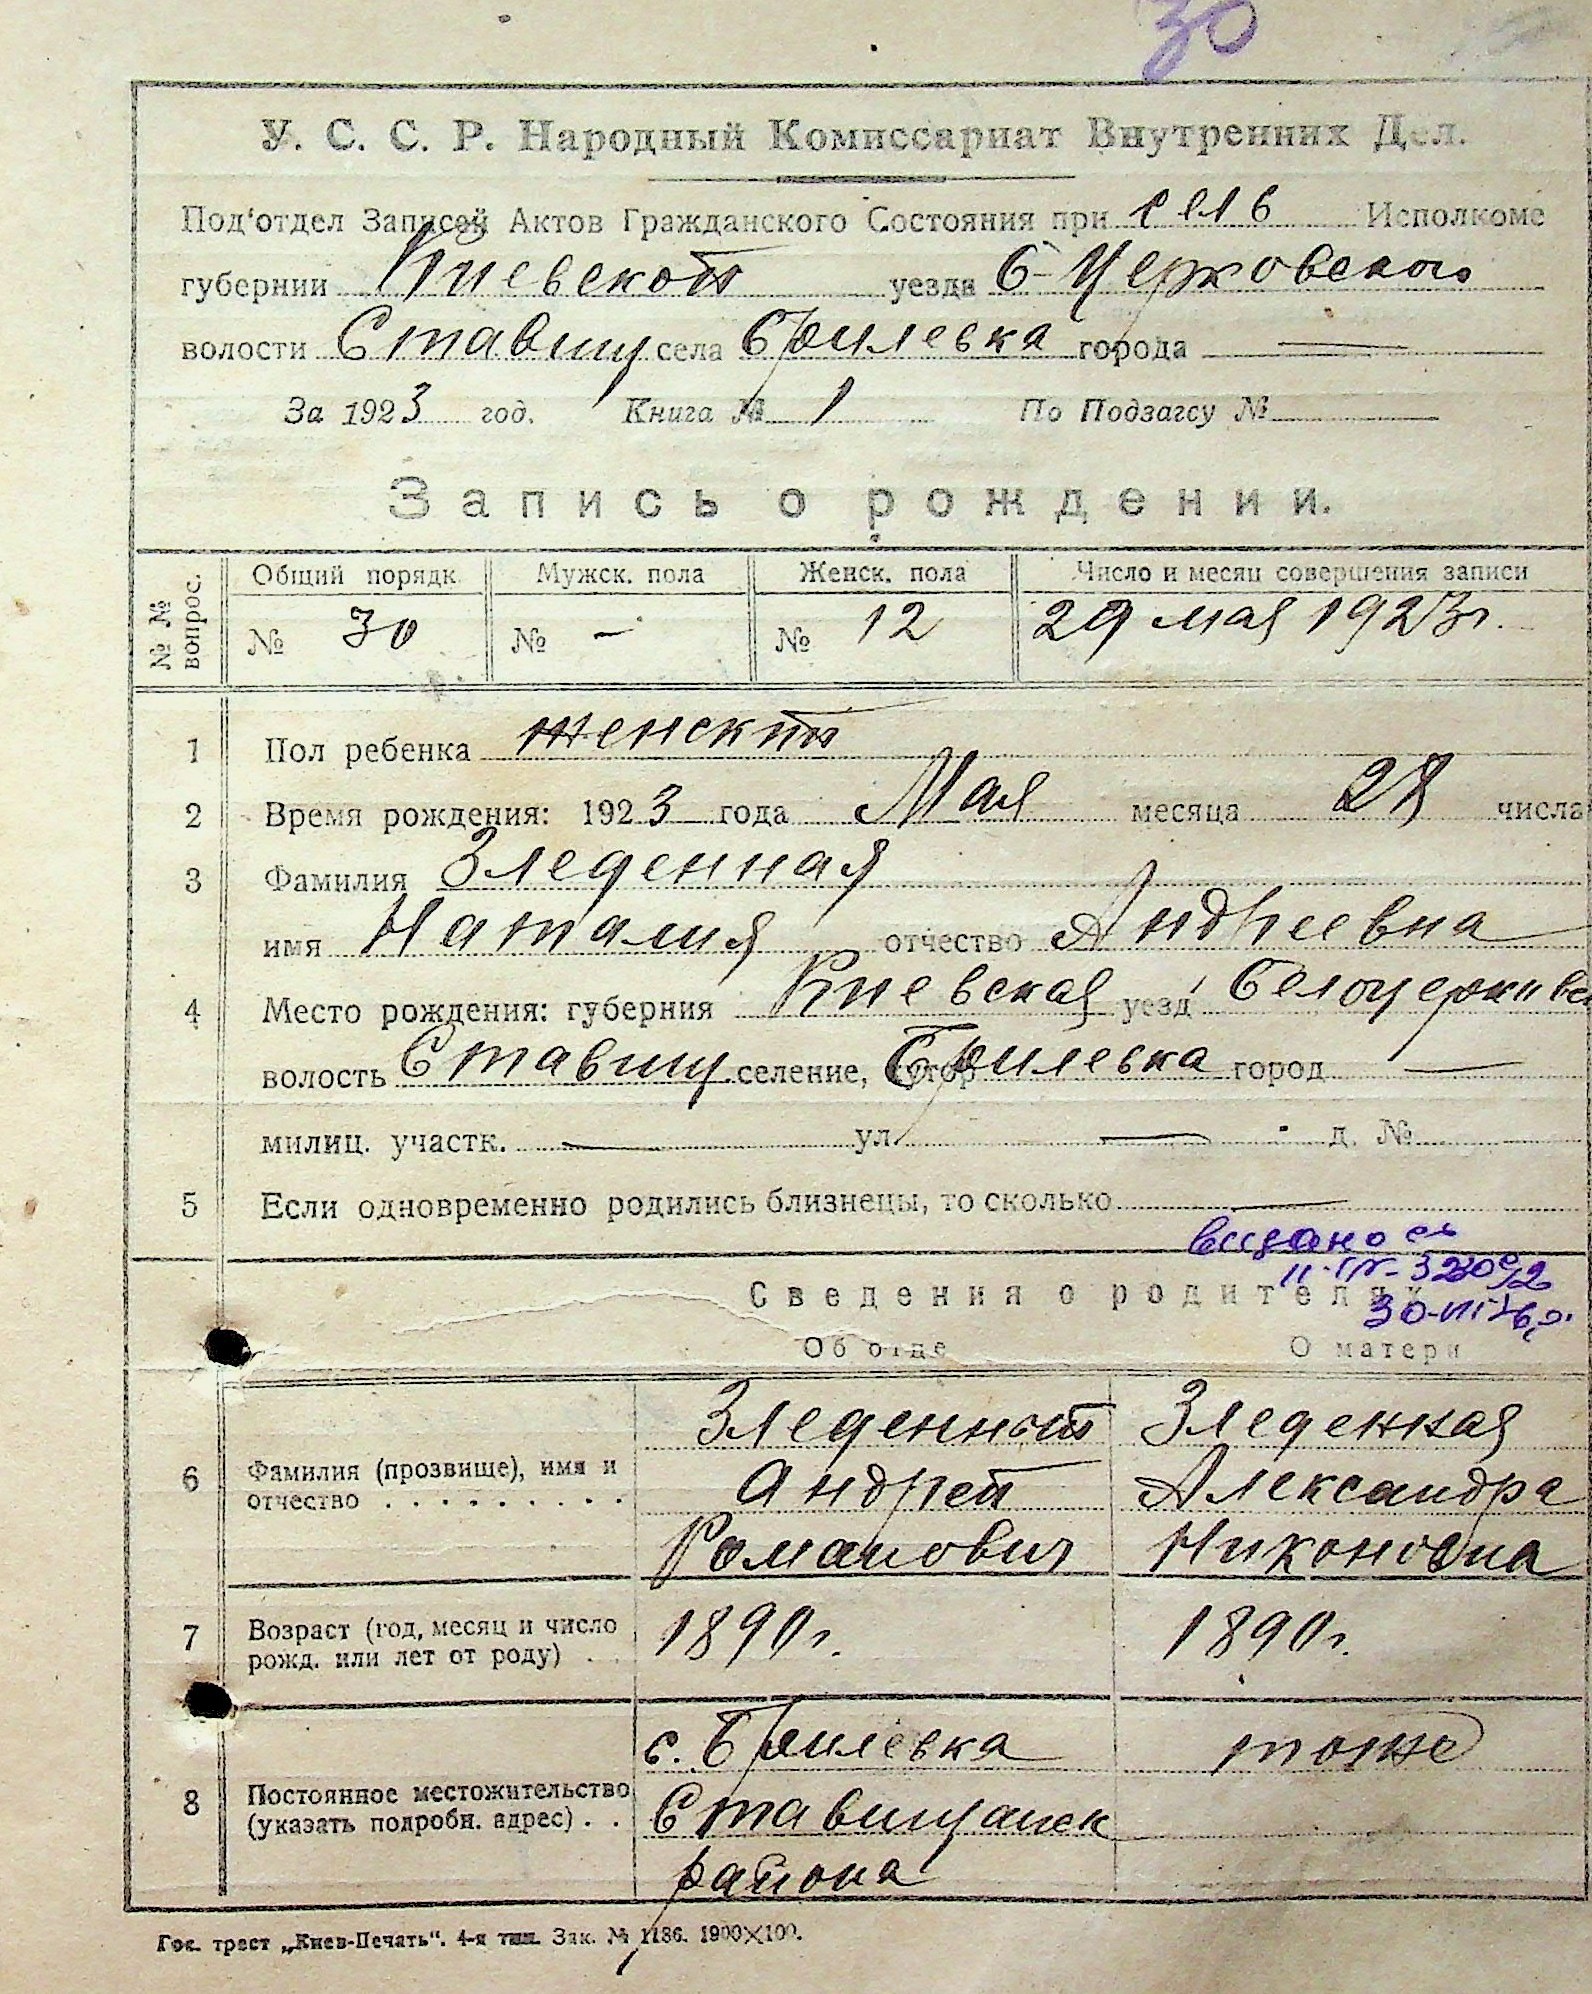 30
У. С. С. Р. Народный Комиссариат Внутренних Дел.
Под'отдел Записей Актов Гражданского Состояния при Исполкоме
губернии Киевской уезда Б-Церковского
волости Ставищ села Брилевка города —
За 1923 год. Книга № 1 По Подзагсу №
Запись о рождении.
№№ вопрос. Общий порядк. Мужск. пола Женск. пола Число и месяц совершения записи
№ 30 № — № 12 29 мая 1923 г.
1 Пол ребенка женский
2 Время рождения: 1923 года Мая месяца 28 числа
3 Фамилия Зледенная
имя Наталия отчество Андреевна
4 Место рождения: губерния Киевская уезд Белоцеркивск
волость Ставищ селение, хутор Брилевка город —
милиц. участк. — ул. — д. №
5 Если одновременно родились близнецы, то сколько —
видано
Сведения о родителях
Об отце О матери
Зледенный Зледенная
6 Фамилия (прозвище), имя и Андрей Александра
отчество . . . . . . . . . Романович Никоновна
7 Возраст (год, месяц и число 1890 г. 1890 г.
рожд. или лет от роду) . .
с. Брилевка тоже
8 Постоянное местожительство Ставищанск
(указать подробн. адрес) . . района
Гос. трест „Киев-Печать“. 4-я тип. Зак. № 1186. 1900×100.